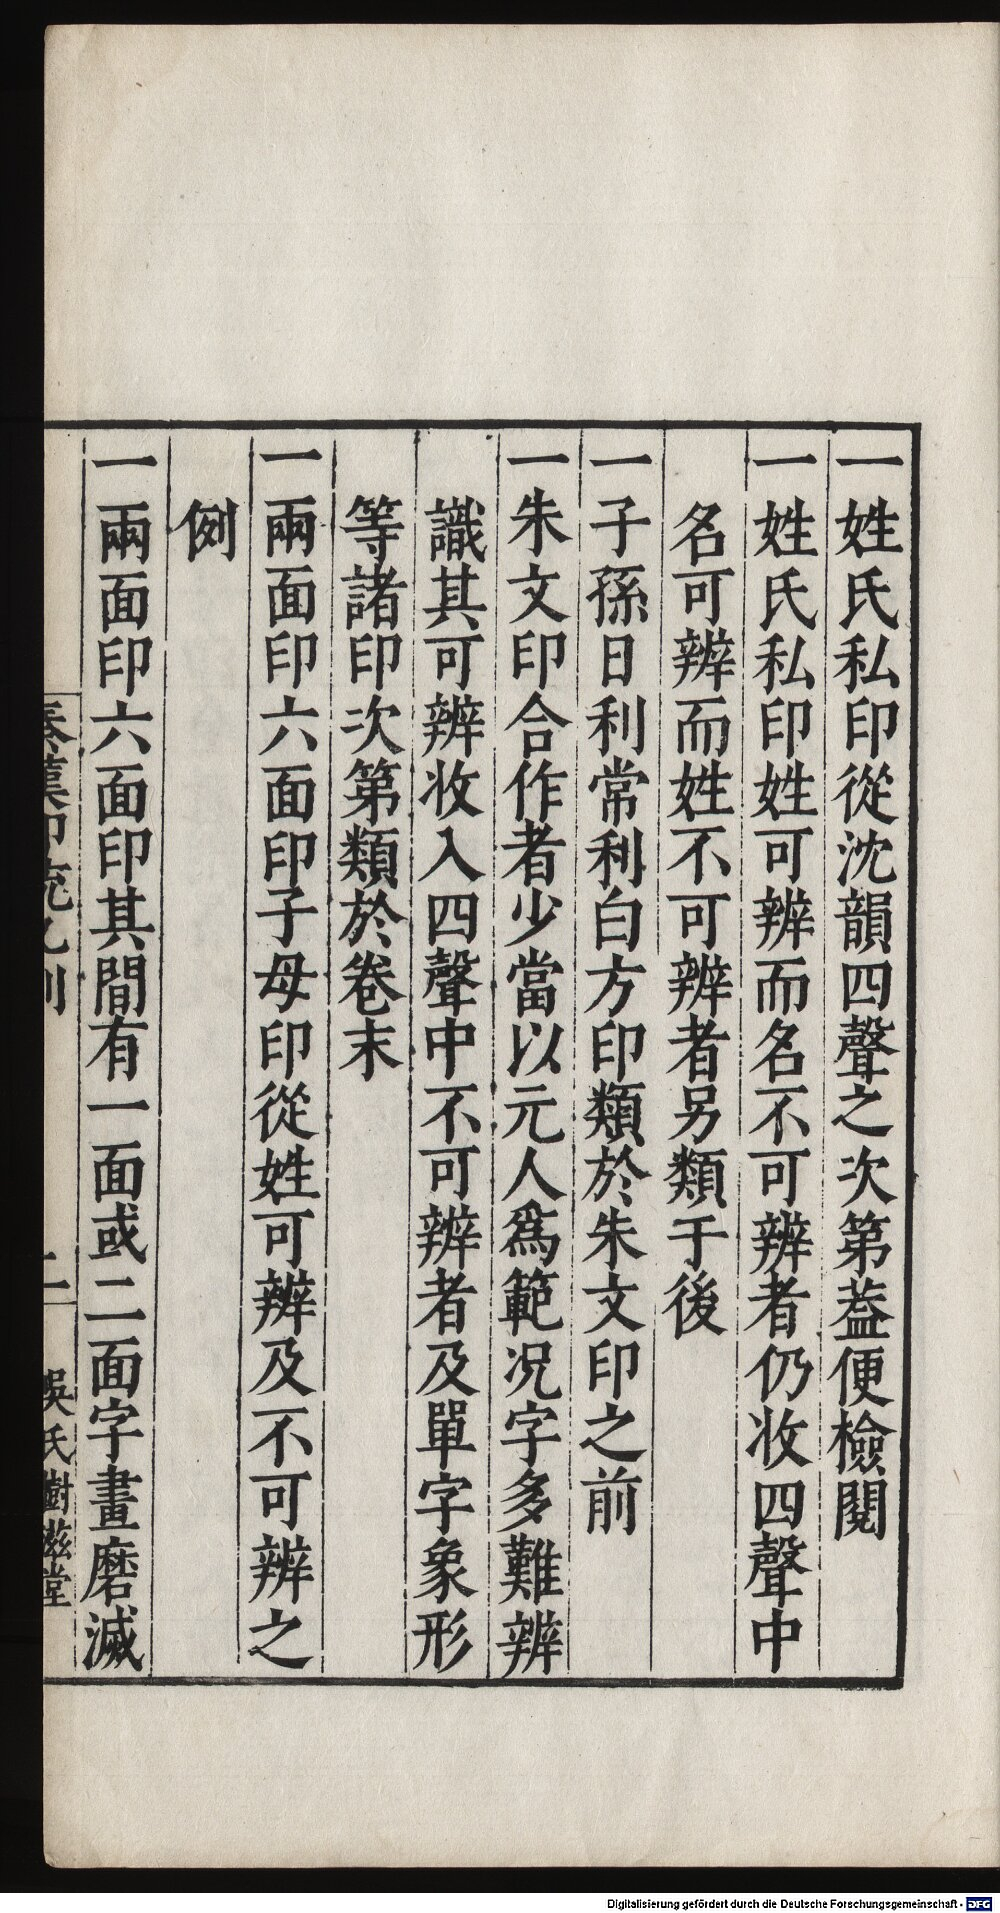 一姓氏私印從沈韻四聲之次第葢便檢閱
一姓氏私印姓可辨而名不可辨者仍收四聲中
名可辨而姓不可辨者另類于後
一子孫日利常利白方印類於朱文印之前
一朱文印合作者少當以元人爲範况字多難辨
識其可辨收入四聲中不可辨者及單字象形
等諸印次第類於卷末
一兩面印六面印子母印從姓可辨及不可辨之
例
一兩面印六面印其間有一面或二面字畫磨滅
秦漢印統凡例
二
吳氏樹滋堂
Digitalisierung gefördert durch die Deutsche Forschungsgemeinschaft - DFG